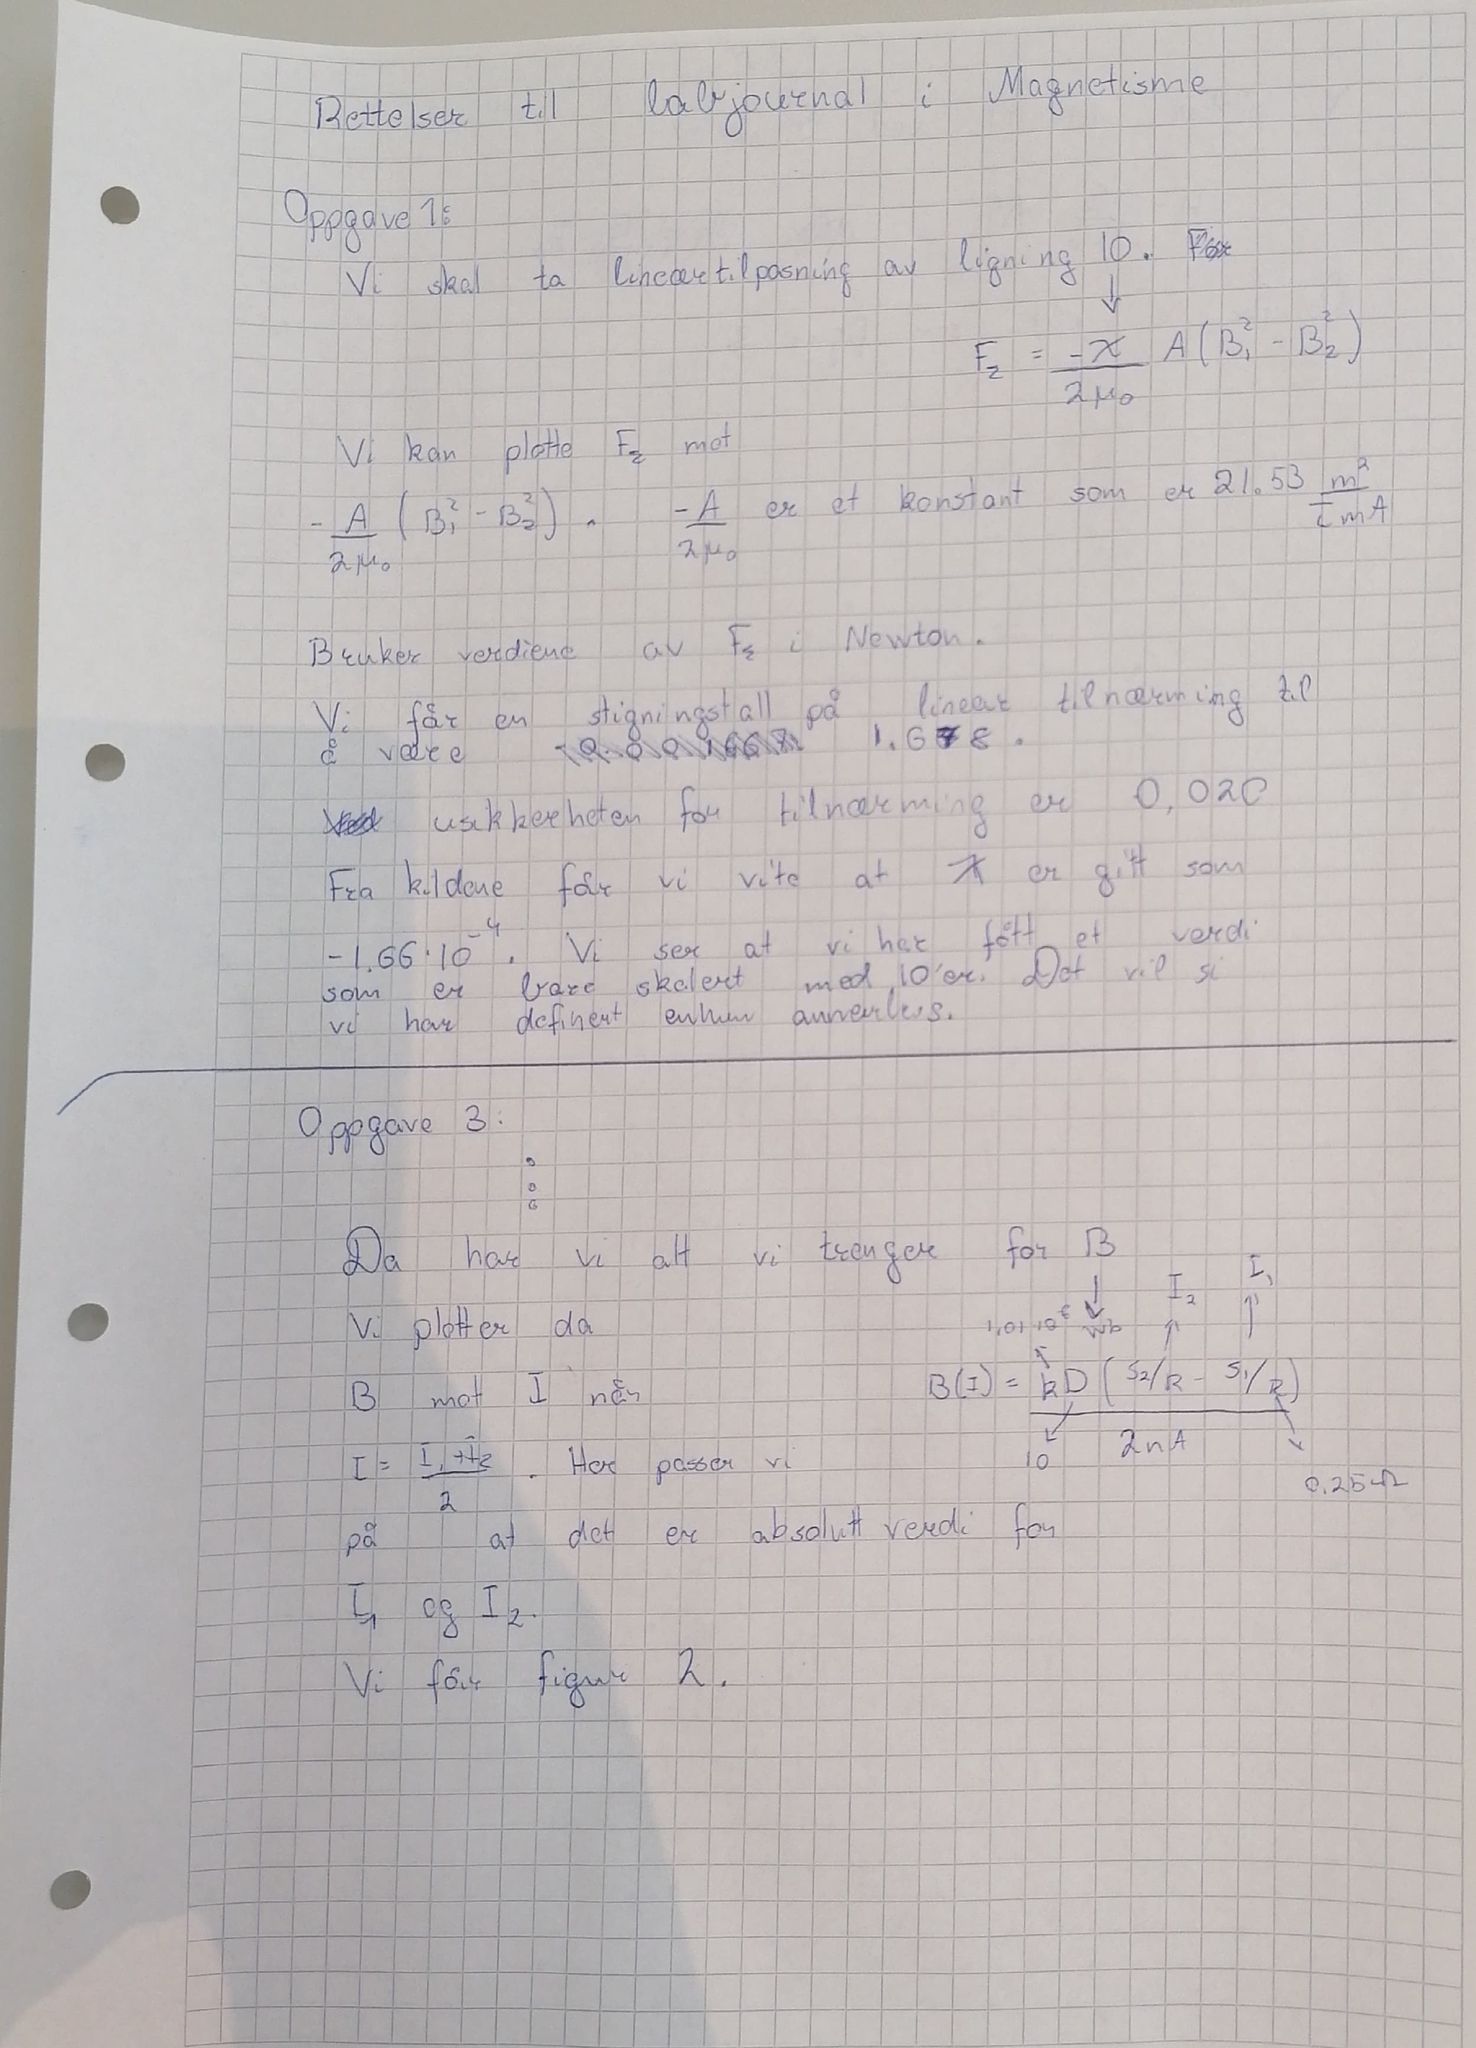 Rettelser til labjournal i Magnetisme
Oppgave 1:
Vi skal ta lineærtilpasning av ligning 10.
↓
F_z = -χ/2μ₀ A(B₁² - B₂²)
Vi kan plotte F_z mot
-A/2μ₀ (B₁² - B₂²). -A/2μ₀ er et konstant som er 21.53 m²/TmA
Bruker verdiene av F_z i Newton.
Vi får en stigningstall på linear tilnærming til
å være 1.678.
usikkerheten for tilnærming er 0,020
Fra kildene får vi vite at χ er gitt som
-1.66·10⁻⁴. Vi ser at vi har fått et verdi
som er bare skalert med 10'er. Det vil si
vi har definert enhen annerleis.
Oppgave 3:
Da har vi alt vi trenger for B
↓ I₂ I₁
Vi plotter da
B mot I når B(I) = kD(S₂/R - S₁/R)/2nA
10 0.25Ω
I = I₁+I₂/2. Her passer vi
på at det er absolutt verdi for
I₁ og I₂.
Vi får figur 2.